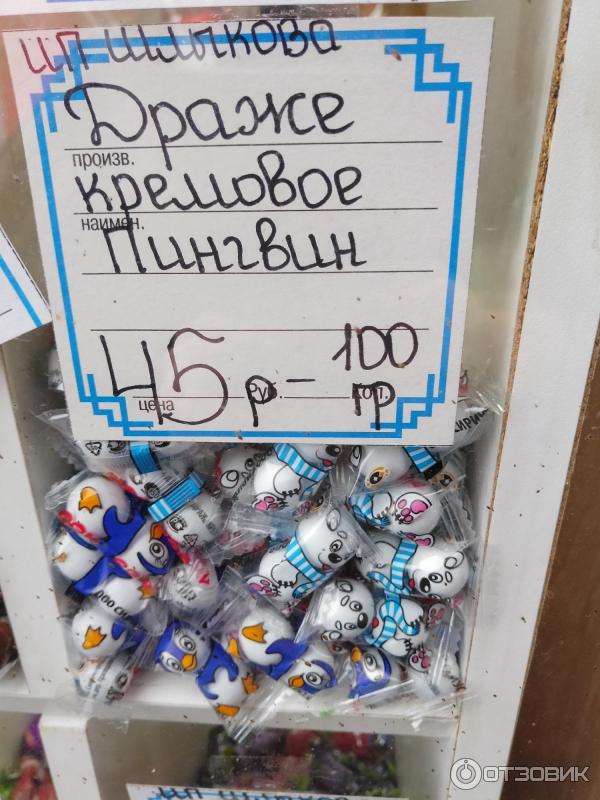 ИП ШЛЫКОВА
Драже
произв.
кремовое
наимен.
Пингвин
45 р - 100 гр
цена Руб. Коп.
ОТЗОВИК